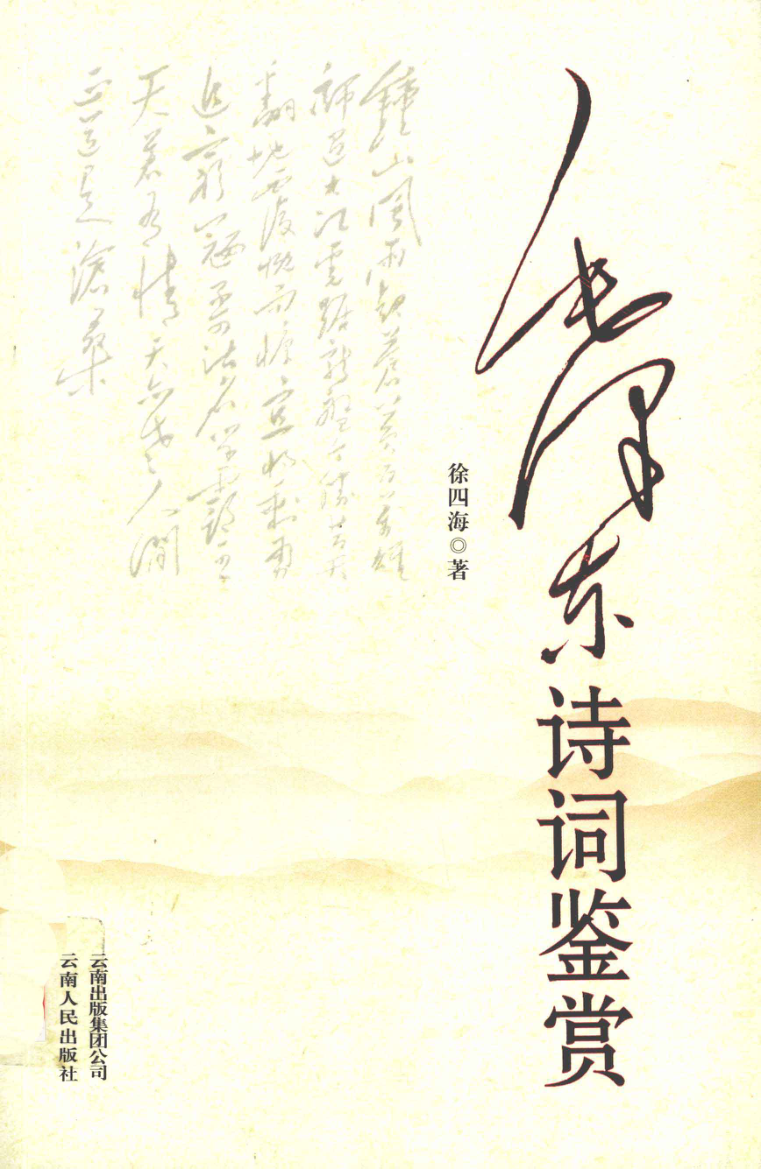 毛泽东诗词鉴赏
徐四海◎著
鍾山風雨起蒼黃百萬雄
師過大江虎踞龍盤今勝昔天
翻地覆慨而慷宜將剩勇
追窮寇不可沽名學霸王
天若有情天亦老人間
正道是滄桑
云南出版集团公司
云南人民出版社